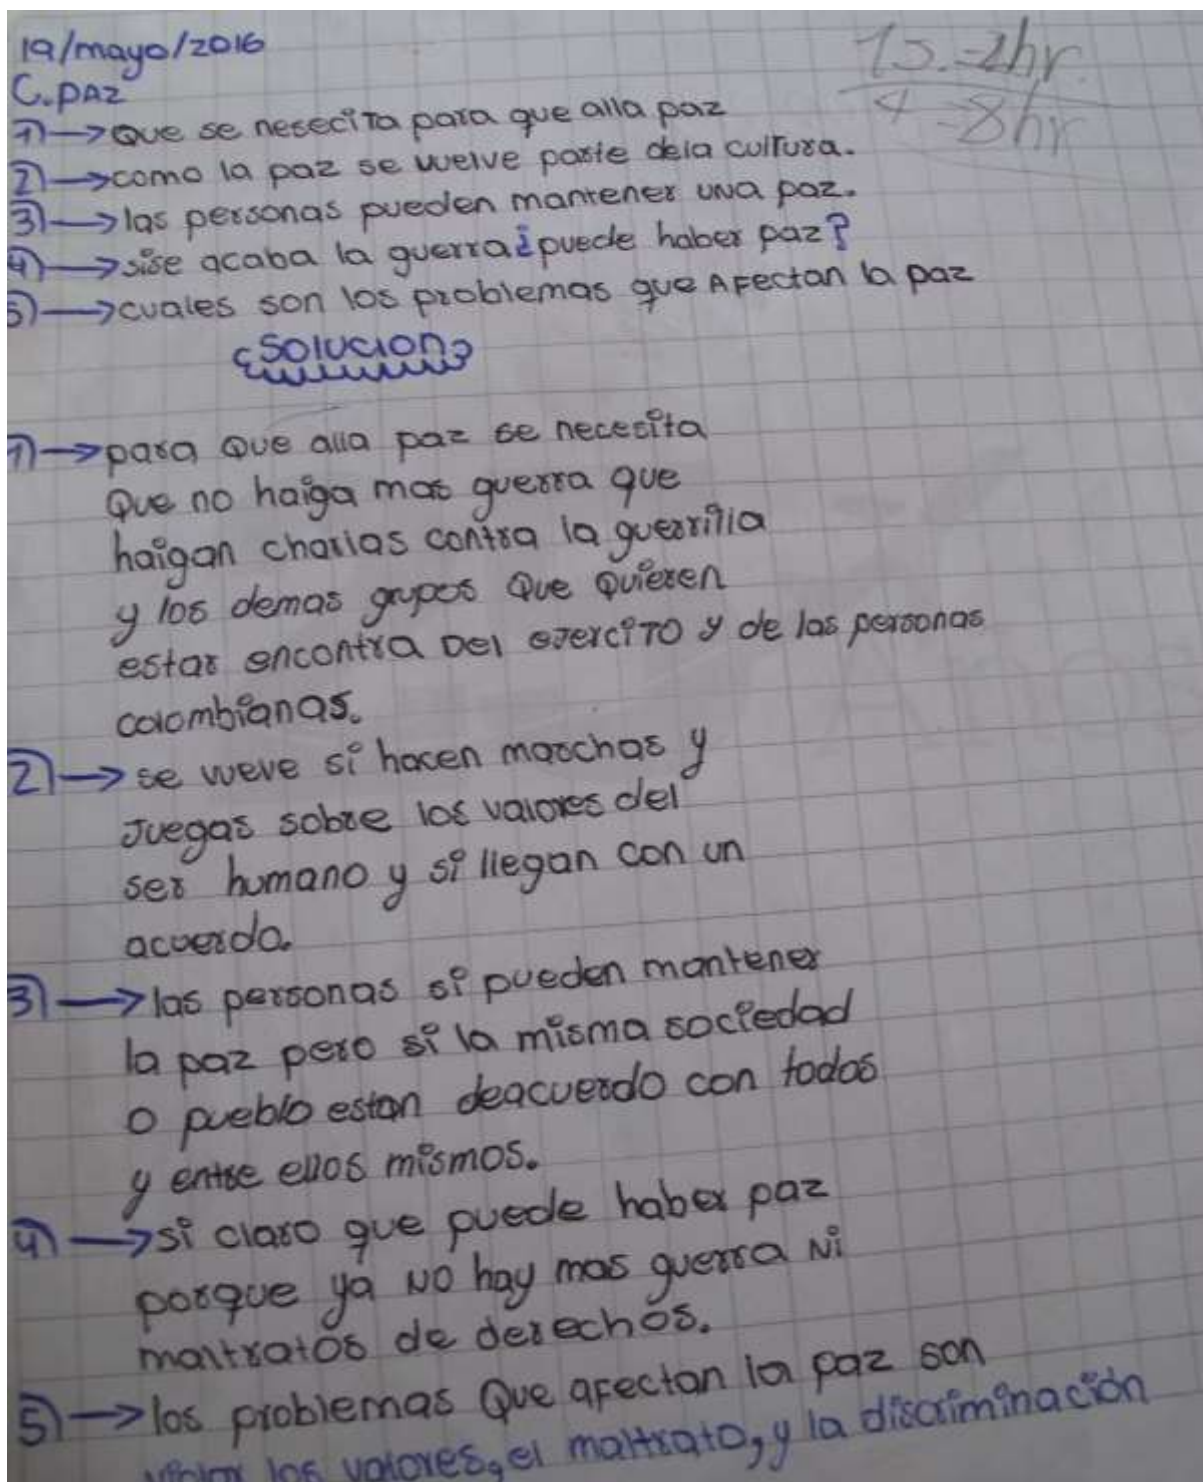 19/mayo/2016
C. PAZ
1) → Que se nesecita para que alla paz
2) → como la paz se welve parte dela cultura.
3) → las personas pueden mantener una paz.
4) → sise acaba la guerra ¿puede haber paz?
5) → cuales son los problemas que Afectan la paz
SOLUCION
1) → para Que alla paz se necesita
Que no haiga mas guerra que
haigan charlas contra la guerrilla
y los demas grupos Que Quieren
estar encontra Del ejercito y de las personas
colombianas.
2) → se weve si hacen marchas y
Juegas sobre los valores del
ser humano y si llegan con un
acuerdo.
3) → las personas si pueden mantener
la paz pero si la misma sociedad
o pueblo estan deacuerdo con todos
y entre ellos mismos.
4) → si claro que puede haber paz
porque ya No hay mas guerra Ni
maltratos de derechos.
5) → los problemas Que afectan la paz son
los valores, el maltrato, y la discriminación
-2hr.
4 -8hr